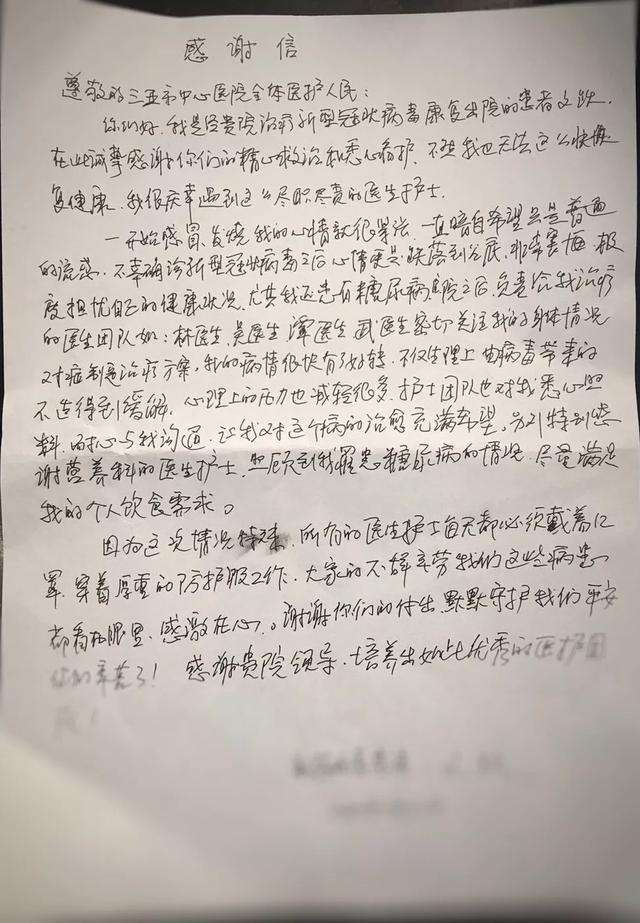 感谢信
尊敬的三亚市中心医院全体医护人民：
你们好，我是经贵院治疗新型冠状病毒康复出院的患者文跌，
在此诚挚感谢你们的精心救治和悉心看护，不然我也无法这么快恢
复健康，我很庆幸遇到这么尽职尽责的医生护士。
一开始感冒、发烧，我的心情就很焦虑，一直暗自希望只是普通
的流感，不幸确诊新型冠状病毒之后心情更是跌落到谷底，非常害怕，极
度担忧自己的健康状况，尤其我还患有糖尿病。出院之后，负责给我治疗
的医生团队如：林医生、吴医生、浑医生、武医生密切关注我的身体情况
对症制定治疗方案，我的病情很快有了好转，不仅生理上由病毒带来的
不适得到缓解，心理上的压力也减轻很多，护士团队也对我悉心照
料，耐心与我沟通，让我对这个病的治愈充满希望。另外特别感
谢营养科的医生护士，照顾到我罹患糖尿病的情况，尽量满足
我的个人饮食需求。
因为这次情况特殊，所有的医生护士每天都必须戴着口
罩，穿着厚重的防护服工作，大家的不辞辛劳我们这些病患
都看在眼里，感激在心。谢谢你们的付出，默默守护我们平安
你们辛苦了！感谢贵院领导，培养出如此优秀的医护团
队！